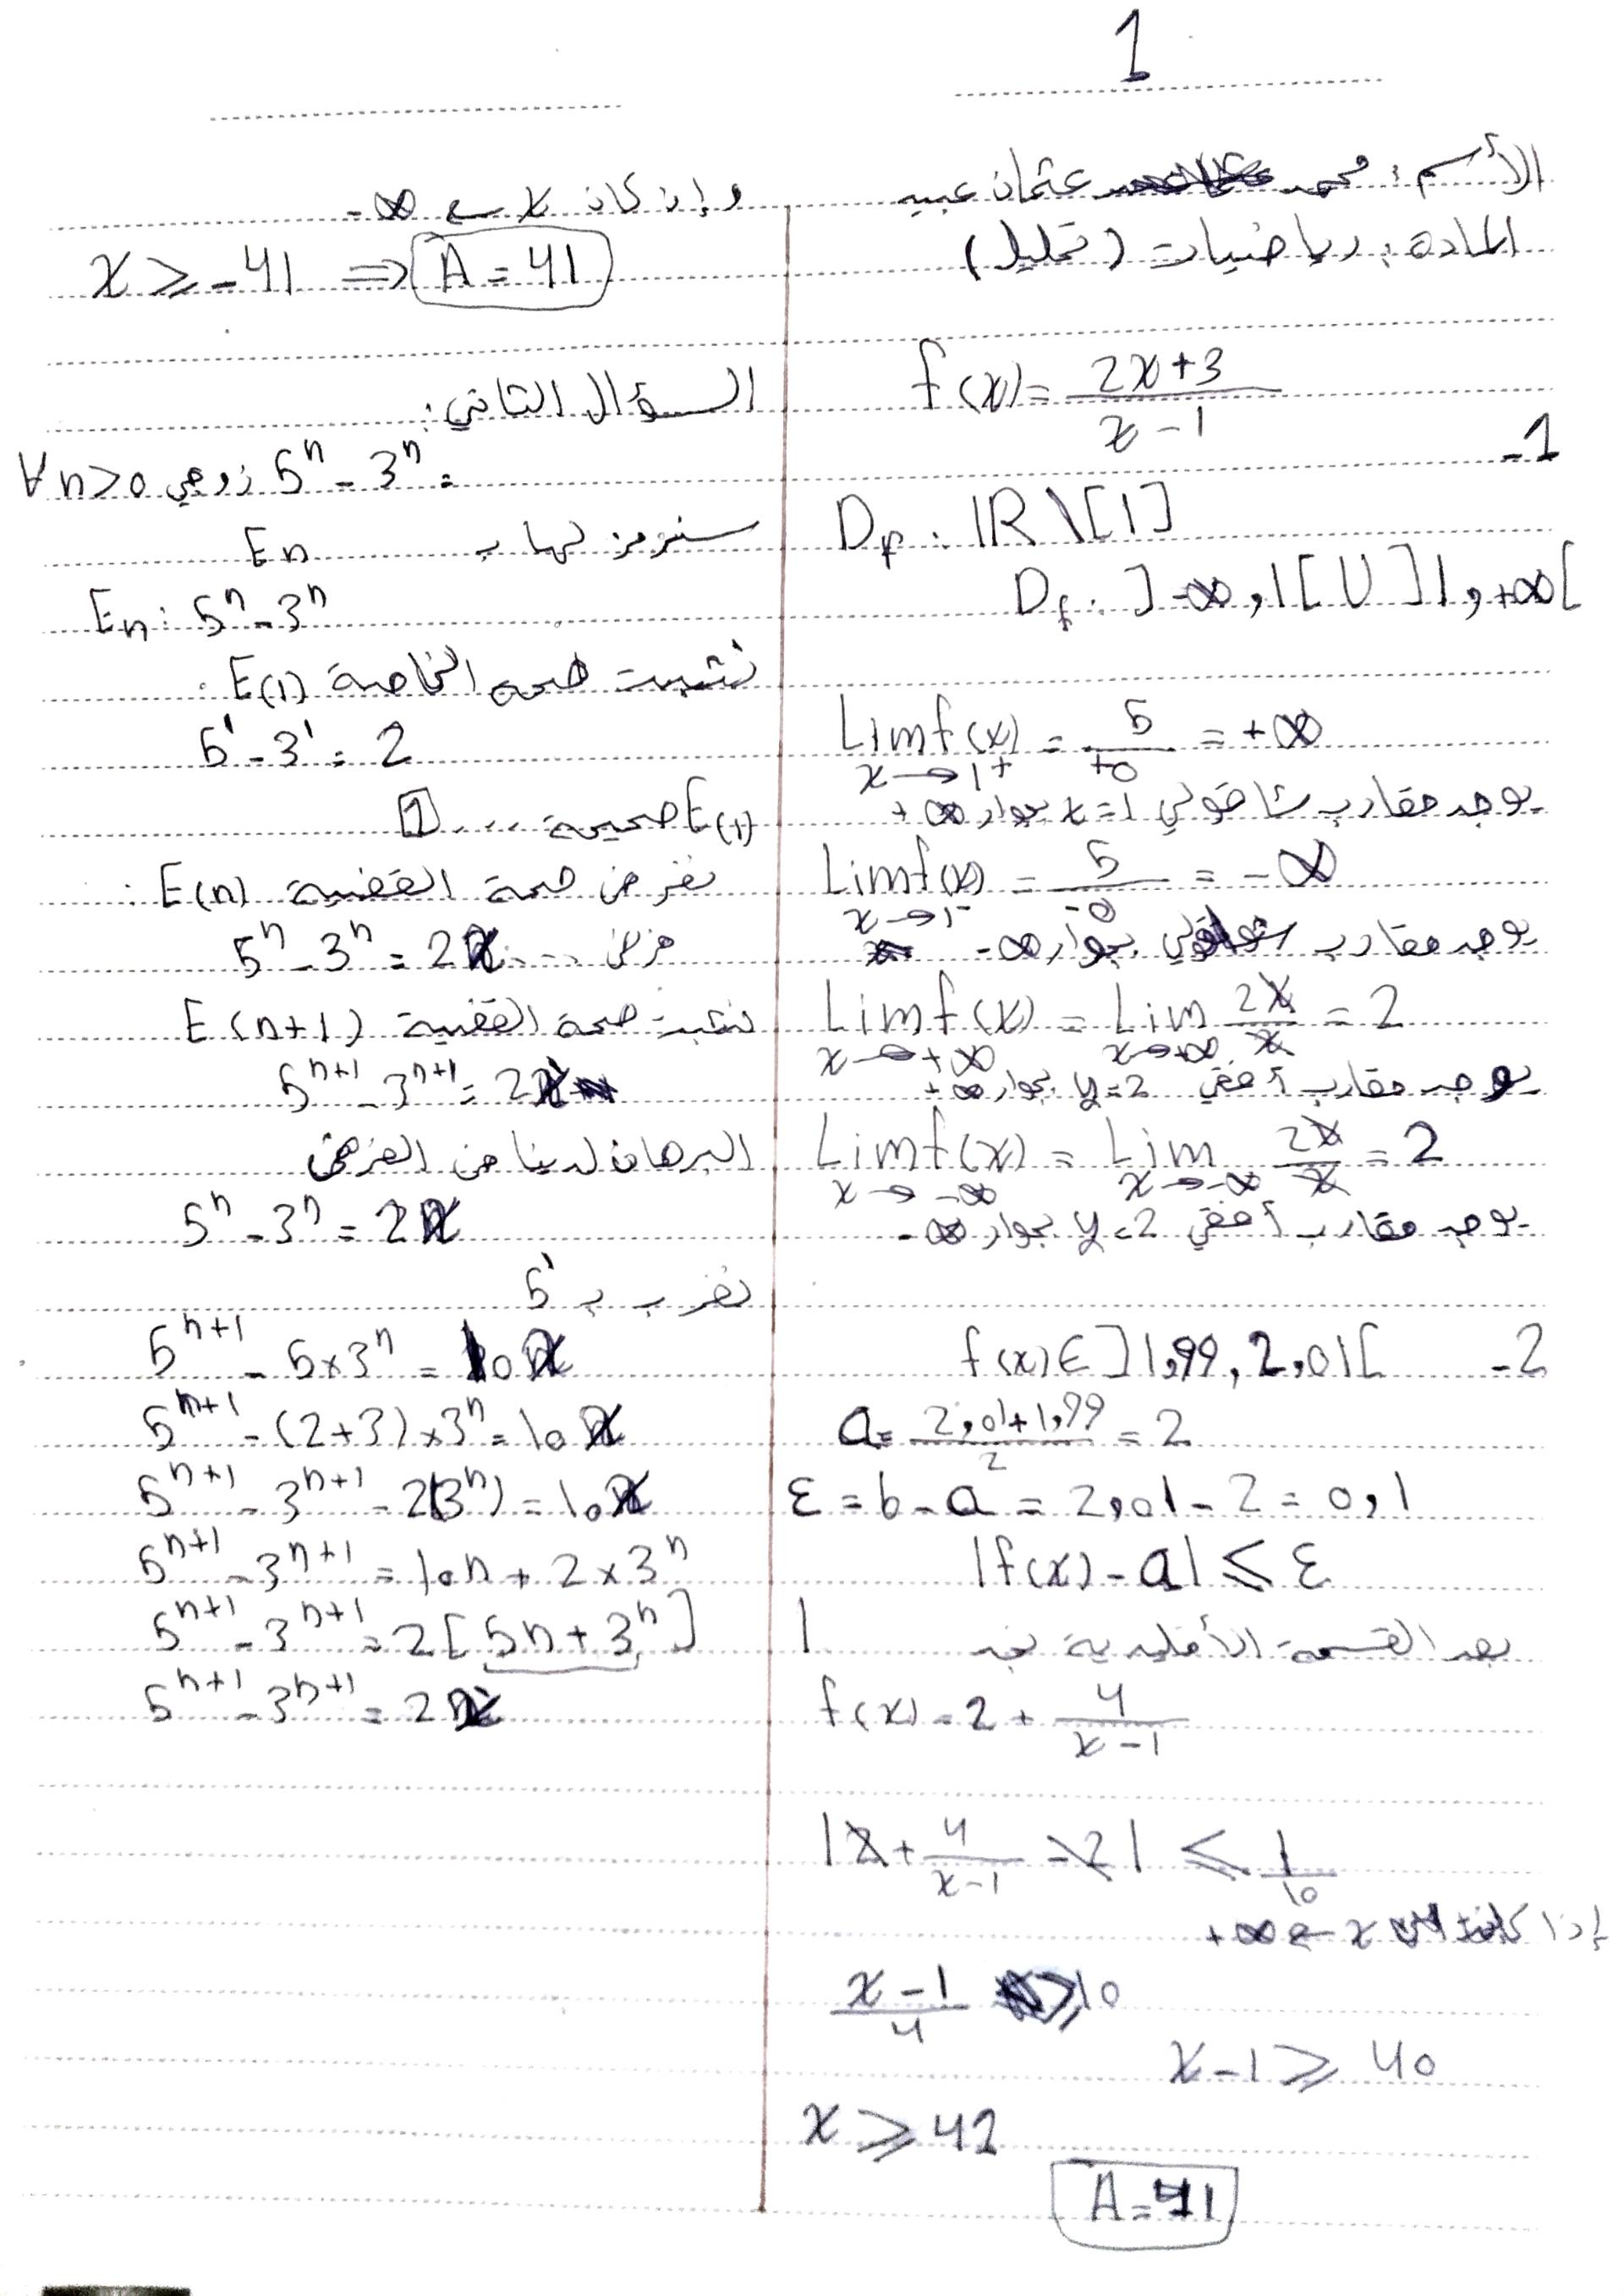 1
الأسم: محمد عثمان عبيد
المادة: رياضيات (تحليل)
f(x) = (2x+3)/(x-1)
-1
D_f : IR \ [1]
D_f : ]-∞, 1[ U ]1, +∞[
Lim f(x) x→1+ = 5/+0 = +∞
يوجد مقارب شاقولي x=1 بجوار +∞
Lim f(x) x→1- = 5/-0 = -∞
يوجد مقارب شاقولي بجوار -∞
Lim f(x) x→+∞ = Lim x→+∞ 2x/x = 2
يوجد مقارب أفقي y=2 بجوار +∞
Lim f(x) x→-∞ = Lim x→-∞ 2x/x = 2
يوجد مقارب أفقي y=2 بجوار -∞
-2 f(x) ∈ ]1,99, 2,01[
a = (2,01+1,99)/2 = 2
ε = b - a = 2,01 - 2 = 0,1
|f(x) - a| ≤ ε
بعد القسمة الأقليدية نجد
f(x) = 2 + 4/(x-1)
|2 + 4/(x-1) - 2| ≤ 1/10
إذا كانت x → +∞
(x-1)/4 ≥ 10
x-1 ≥ 40
x ≥ 42
A = 41
وإن كان x يسع -∞
x ≥ -41 ⇒ A = 41
السؤال الثاني:
5^n - 3^n = زوجي ∀n>0
سنرمز لها بـ En
En : 5^n - 3^n
نثبت صحة الخاصة E(1)
5^1 - 3^1 = 2
E(1) صحيحة ... 1
نفرض صحة القضية E(n) :
5^n - 3^n = 2x ... فرض
نثبت صحة القضية E(n+1)
5^(n+1) - 3^(n+1) = 2x
البرهان لدينا من الفرض
5^n - 3^n = 2x
نضرب بـ 5^1
5^(n+1) - 5×3^n = 10x
5^(n+1) - (2+3)×3^n = 10x
5^(n+1) - 3^(n+1) - 2(3^n) = 10x
5^(n+1) - 3^(n+1) = 10n + 2×3^n
5^(n+1) - 3^(n+1) = 2[5n + 3^n]
5^(n+1) - 3^(n+1) = 2x